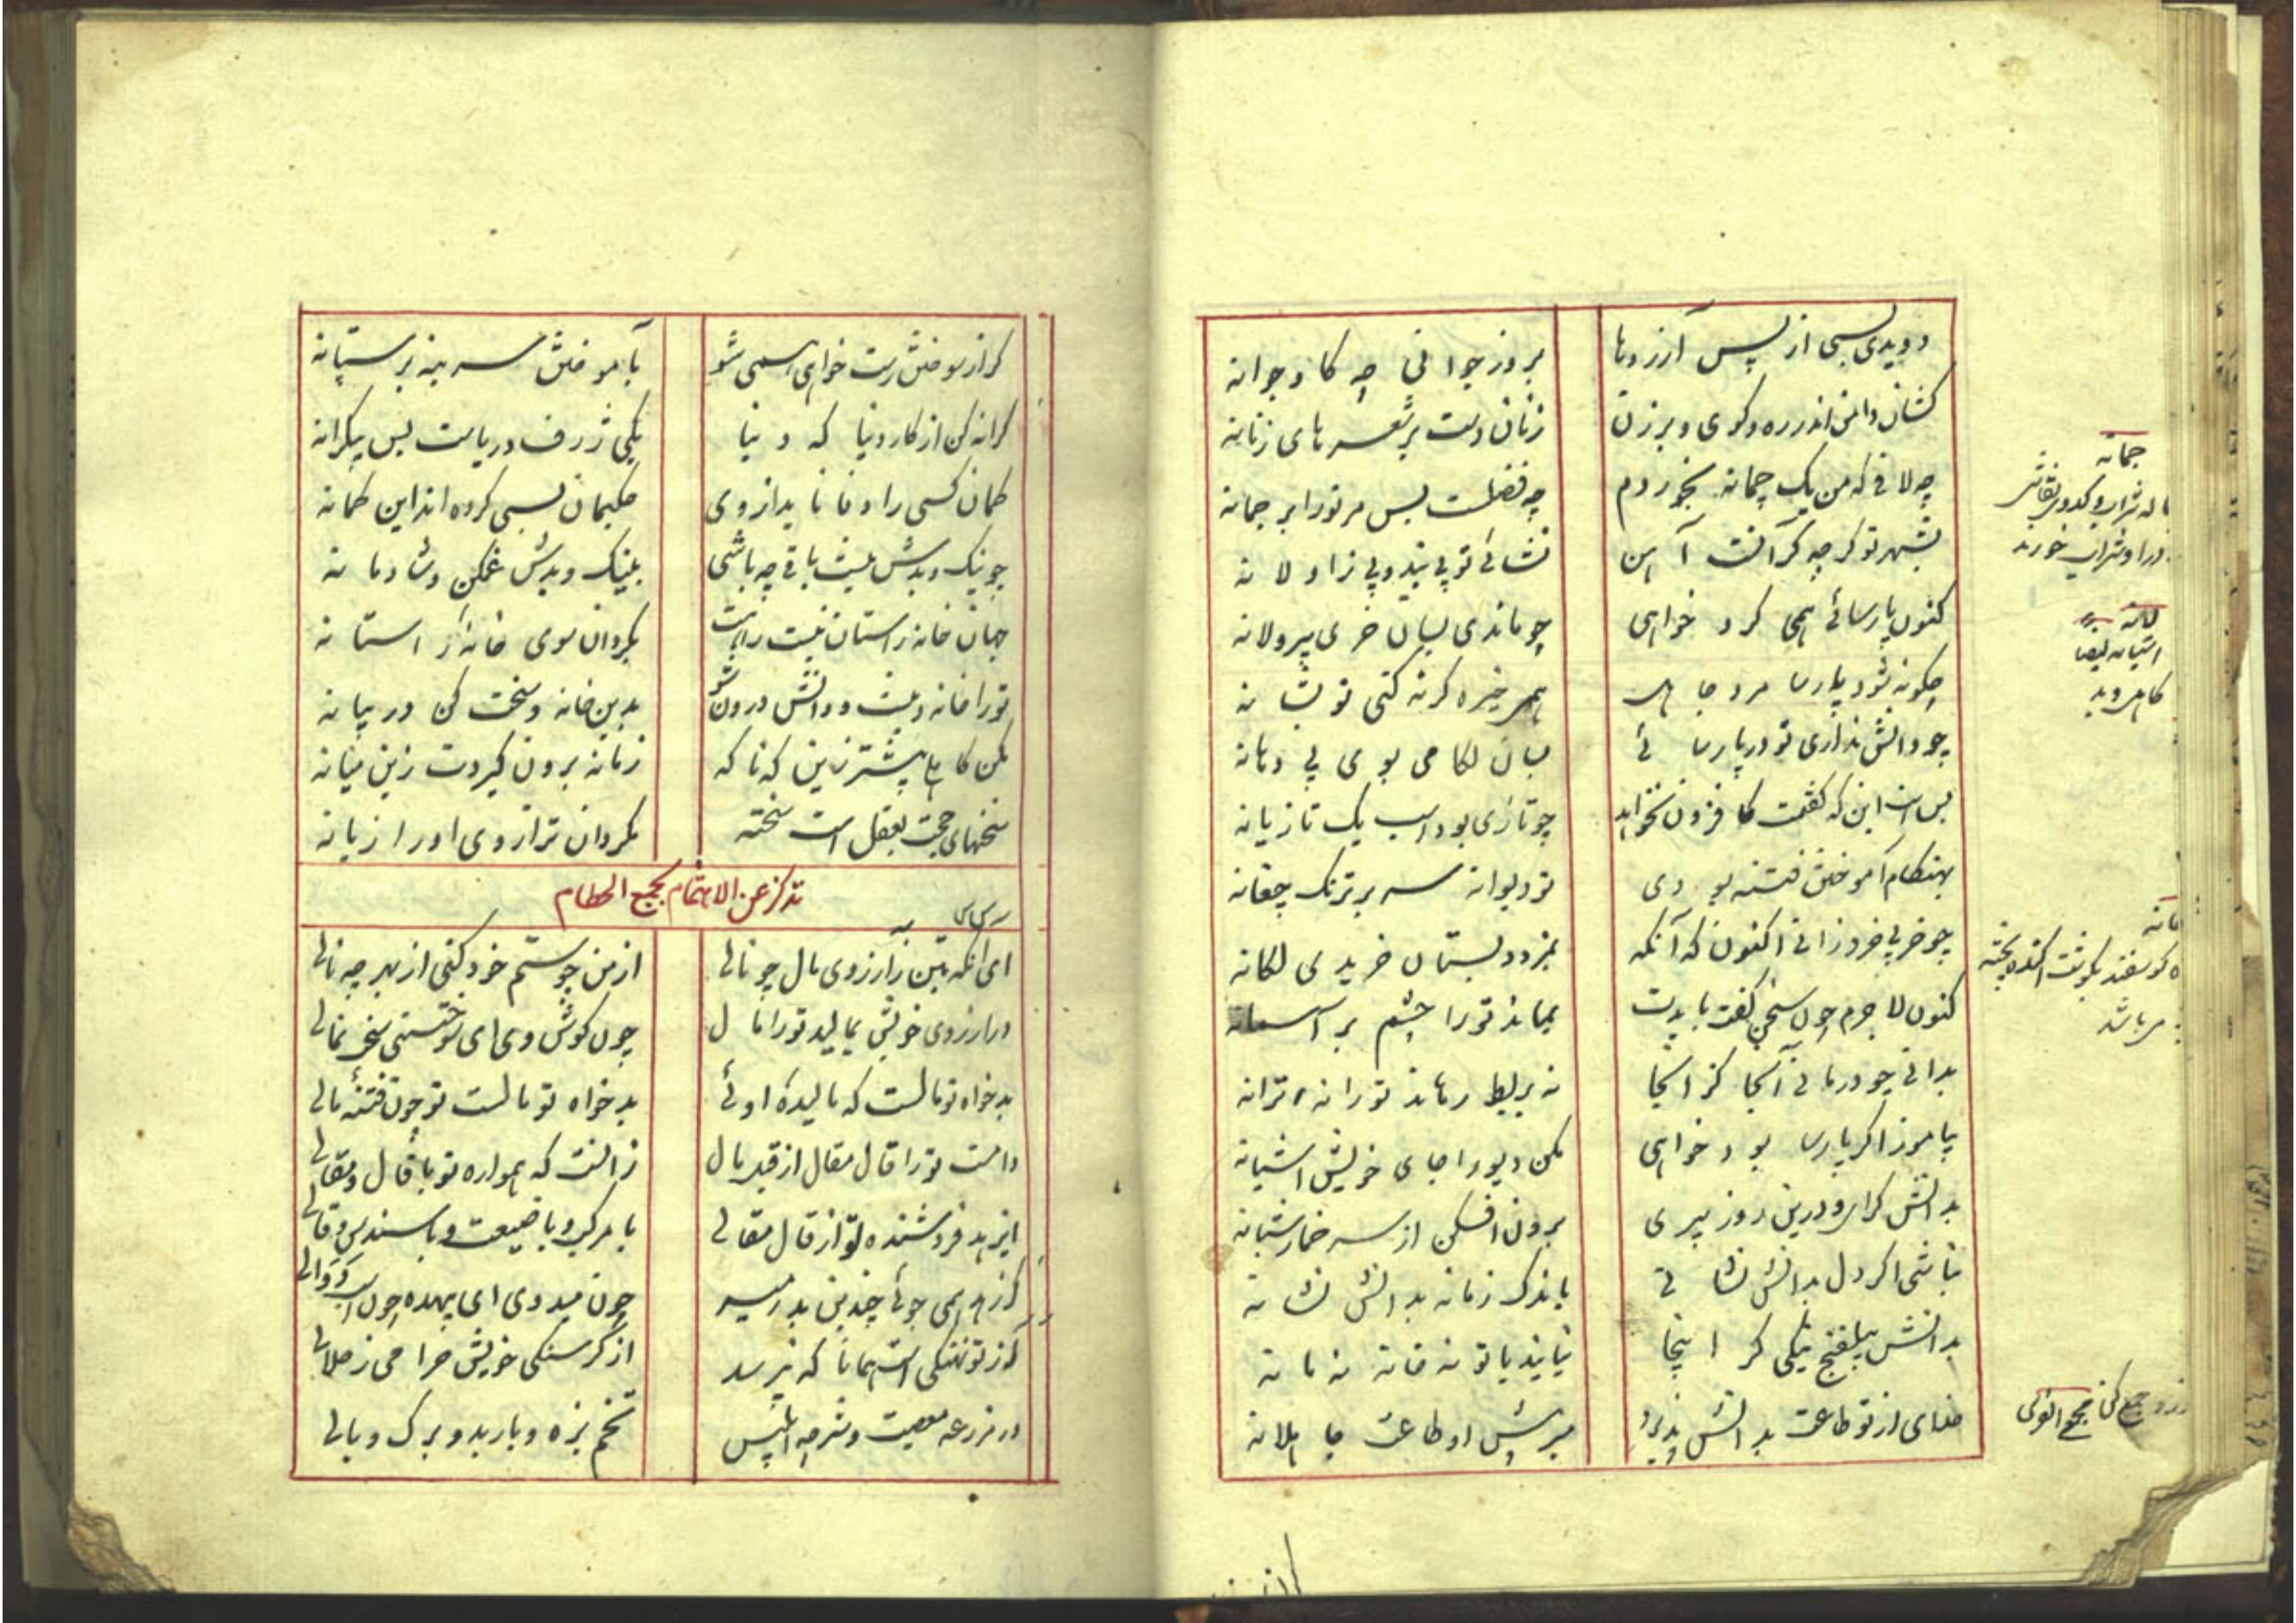 دویدی بسی از پس آرزوها
بروز جوانی چه کاو جوانه
کشان دامن اندر ره و کوی و برزن
زنان دست بر شعرهای زنانه
چه لافی که من یک چمانه بخوردم
چه فضلست پس مر تو را بر چمانه
بشهر تو گرچه گرانست آهن
نشائی تو بی بند و بی زاولانه
کنون پارسائی همی کرد خواهی
چو ماندی بسان خری پیر ولانه
چگونه شود پارسا مرد جاهل
همی خیره گربه کنی تو بشانه
چو دانش نداری تو در پارسائی
بسان لگامی بوی بی دهانه
بس است این که گفتمت کافزون نخواهد
چو تازی بود اسب یک تازیانه
بهنگام آموختن فتنه بودی
تو دیوانه سر بر ترنگ چغانه
چو خر بی خرد زانی اکنون که آنگه
بمزد دبستان خریدی لکانه
کنون لاجرم چون سخن گفت بایدت
بماند تو را چشم بر آسمانه
بدانی چو درمانی آنجا کز آنجا
نه بربط رهاند تو را نه ترانه
بیاموز اگر پارسا بود خواهی
مکن دیو را جای خویش آشیانه
بدانش گرای و درین روز پیری
برون افکن از سر خمار شبانه
نباشی اگر دل بدانش نشانی
باندک زمانه بدانش نشانه
بدانش بیلفنج نیکی کز اینجا
نیاید با تو نه خانه نه مانه
خدای از تو طاعت بدانش پذیرد
مبر پیش او طاعت جاهلانه
چمانه
لانه
آشیانه
کاهل و بد
گر از سوختن رست خواهی همی شو
بآموختن سر بنه بر ستانه
کرانه کن از کار دنیا که دنیا
یکی ژرف دریاست بس بیکرانه
گمان کسی را وفا ناید از وی
حکیمان بسی کرده اند این گمانه
چو نیک و بدش نیست باقی چه باشی
بنیک و بدش غمگن و شادمانه
جهان خانه راستان نیست راهت
بگردان سوی خانه راستانه
تو را خانه دینست و دانش درون شو
بدین خانه و سخت کن در بیانه
مکن کاهلی پیشتر زین که ناگه
زمانه برون گیردت زین میانه
سخنهای حجت بعقل است سخته
مگردان ترازوی او را زبانه
تذکر عن الاهتمام بجمع الحطام
ای آنکه بتن زآرزوی مال چو نالی
از من چو ستم خود کنی از بهر چه نالی
در آرزوی خویش بمالید تو را مال
چون گوش وی ای سوختنی سخت نمالی
بدخواه تو مالست که مالیده اوئی
بدخواه تو مالست تو چون فتنه مالی
دامست تو را قال مقال از قبل مال
زانست که همواره تو با قال و مقالی
ایزد بد فروشنده تو از قال مقالی
با مرکب و با ضیعت و با سندس و قالی
کز بد همی جوئی چندین بدر میر
چون میدوی ای بیهده چون اسب دوالی
گر از تو نهنگی است همانا که نپرسد
از گرسنگی خویش حرامی ز حلالی
در مزرعه معصیت و شر چه ابلیس
تخم بزه و بار بد و برگ وبالی